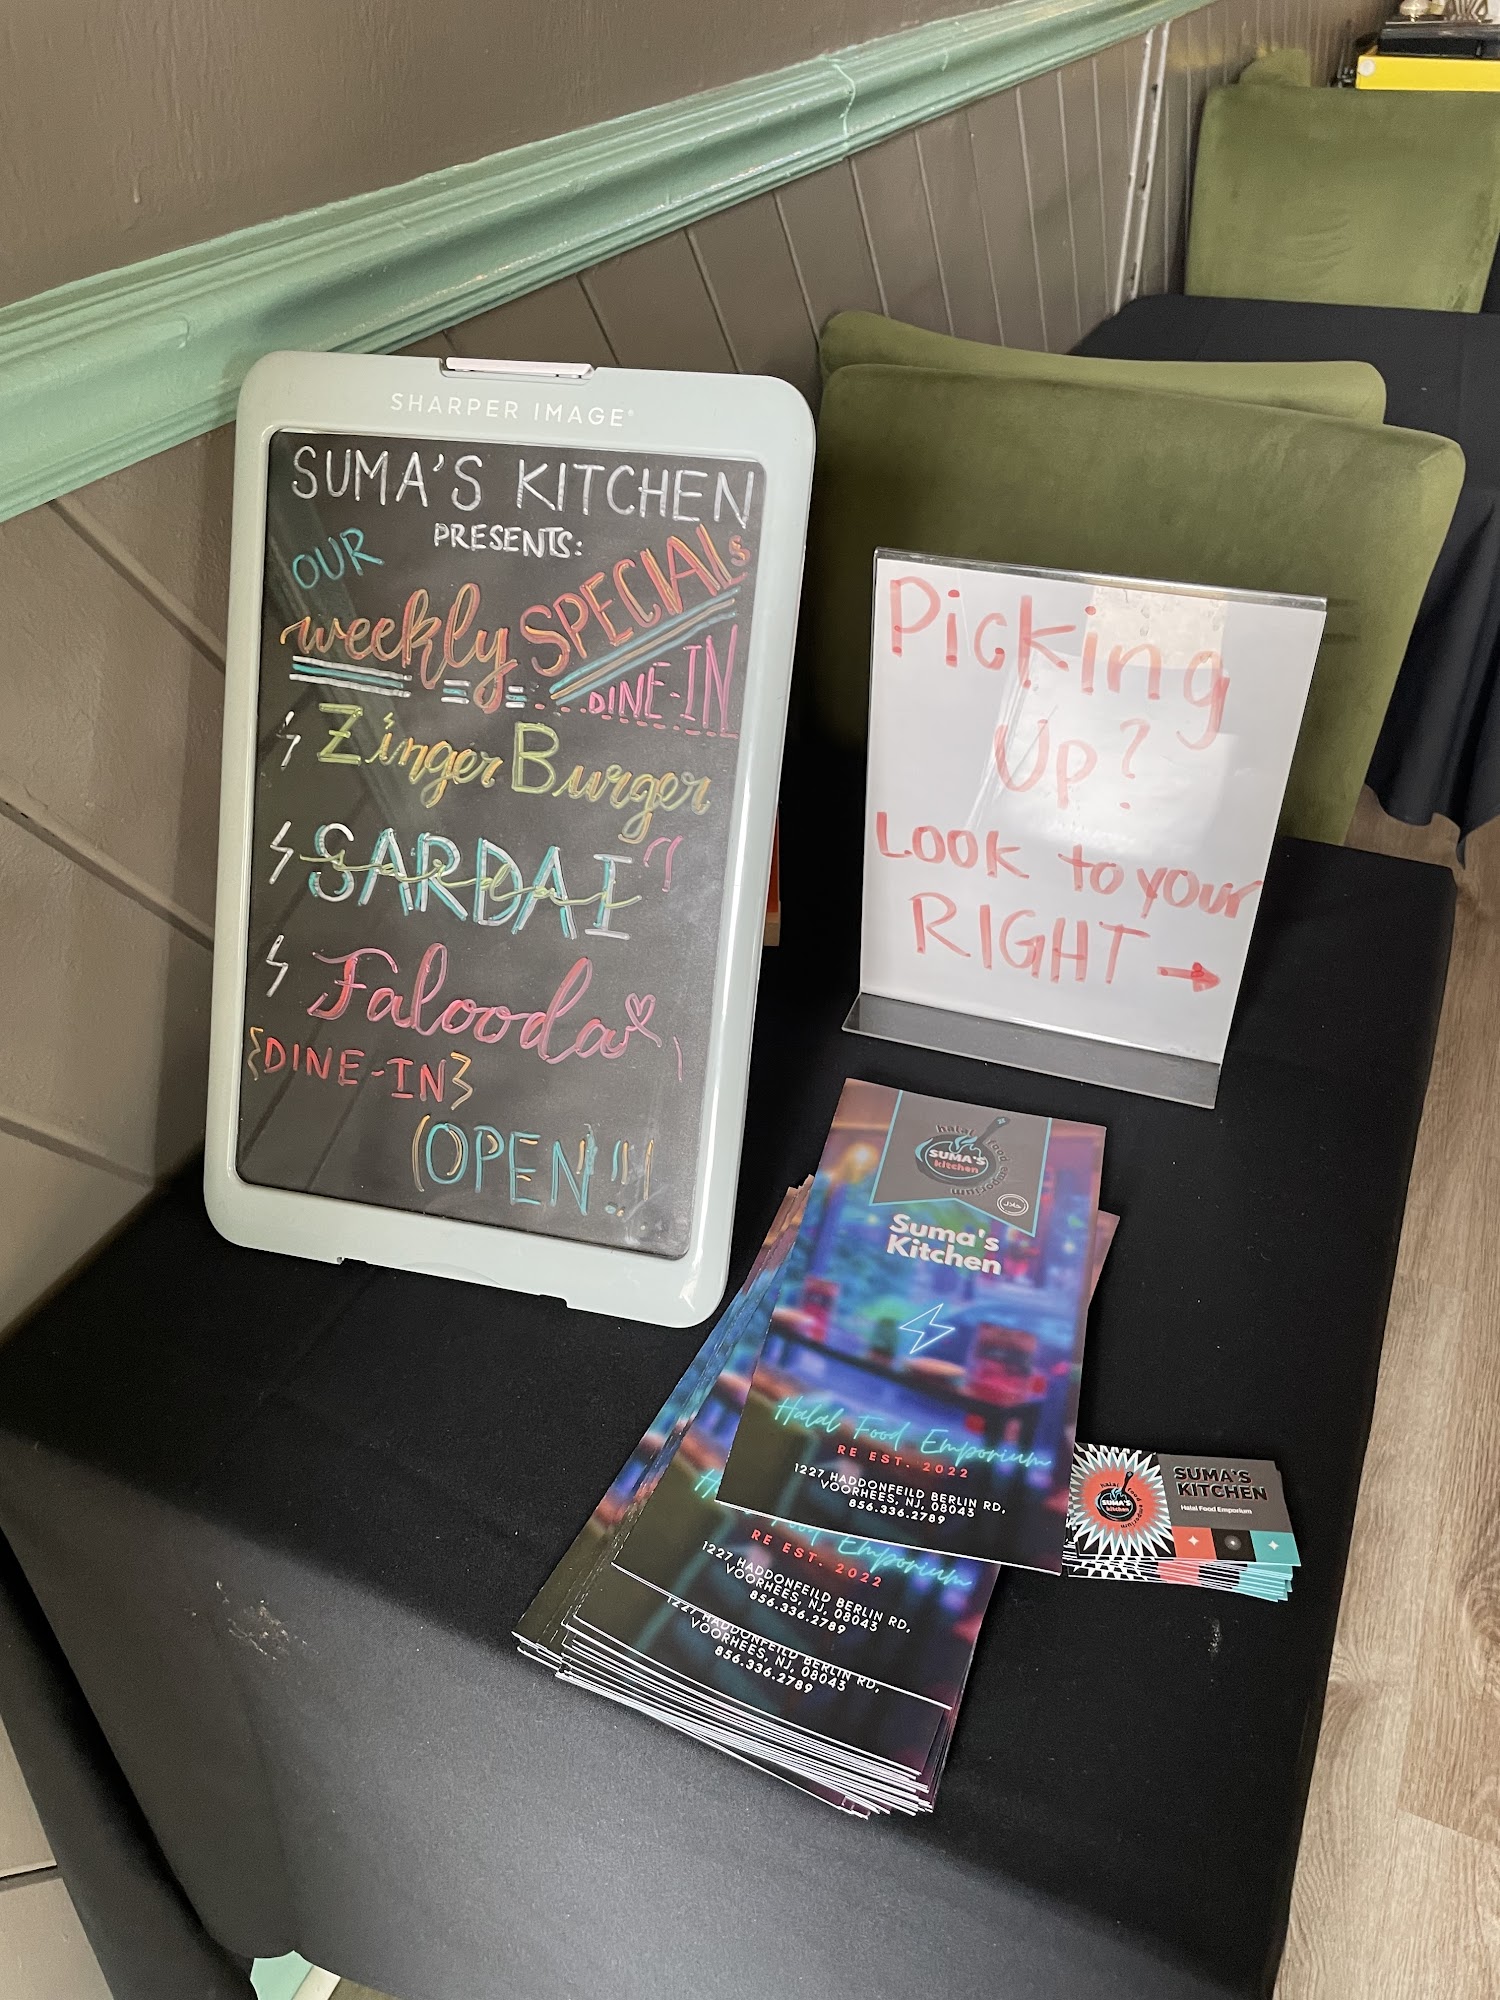 SHARPER IMAGE®
SUMA'S KITCHEN
PRESENTS:
OUR
weekly SPECIALS
DINE-IN
Zinger Burger
SARDAI
Falooda
{DINE-IN}
(OPEN!!!)
Picking
Up?
LOOK to your
RIGHT →
halal food emporium
SUMA'S
kitchen
حلال
Suma's
Kitchen
Halal Food Emporium
RE EST. 2022
1227 HADDONFEILD BERLIN RD,
VOORHEES, NJ, 08043
856.336.2789
Food Emporium
RE EST. 2022
1227 HADDONFEILD BERLIN RD,
VOORHEES, NJ, 08043
856.336.2789
1227 HADDONFEILD BERLIN RD,
VOORHEES, NJ, 08043
856.336.2789
halal food emporium
SUMA'S
kitchen
SUMA'S
KITCHEN
Halal Food Emporium